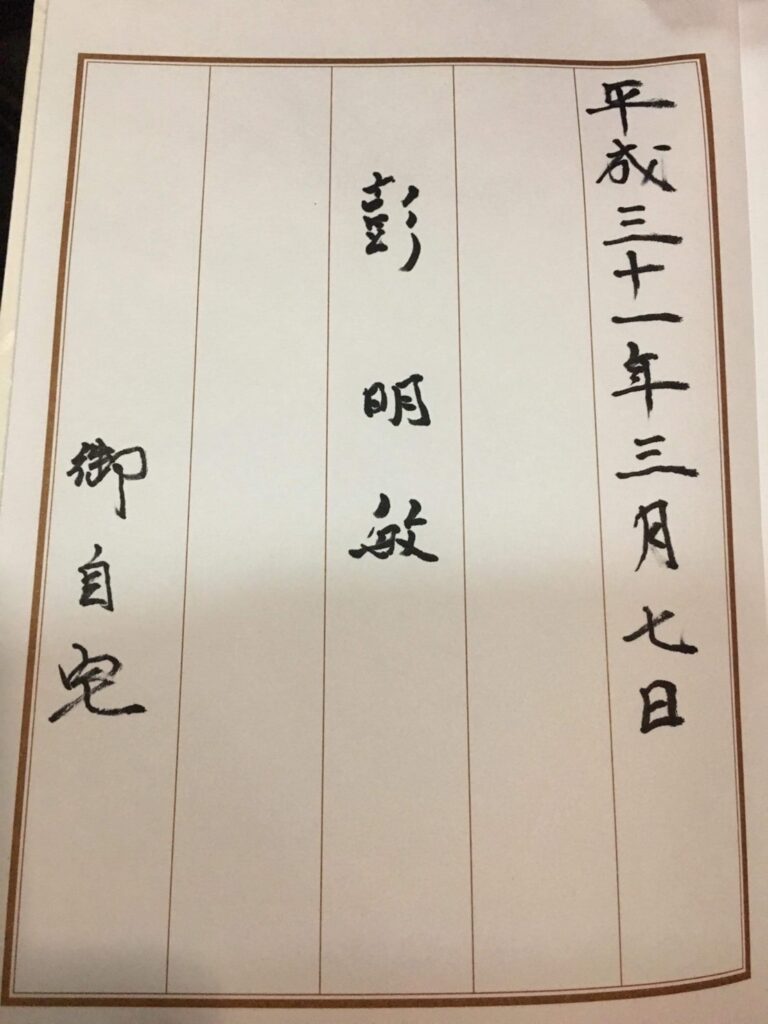 平成三十一年三月七日
彭明敏
御自宅